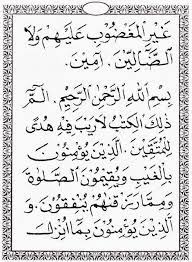 غَيْرِ الْمَغْضُوبِ عَلَيْهِمْ وَلَا
الضَّالِّينَ. اٰمِينَ.
بِسْمِ اللهِ الرَّحْمٰنِ الرَّحِيْمِ. الٓمٓ
ذٰلِكَ الْكِتٰبُ لَا رَيْبَ فِيْهِ هُدًى
لِلْمُتَّقِيْنَ. الَّذِيْنَ يُؤْمِنُوْنَ
بِالْغَيْبِ وَيُقِيْمُوْنَ الصَّلٰوةَ
وَمِمَّا رَزَقْنٰهُمْ يُنْفِقُوْنَ. وَ
الَّذِيْنَ يُؤْمِنُوْنَ بِمَا اُنْزِلَ